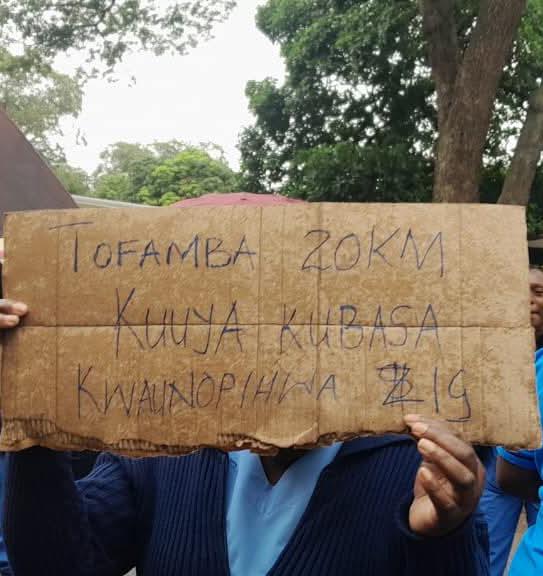 TOFAMBA 20KM
KUUYA KUBASA
KWAUNOPIHWA ZIG